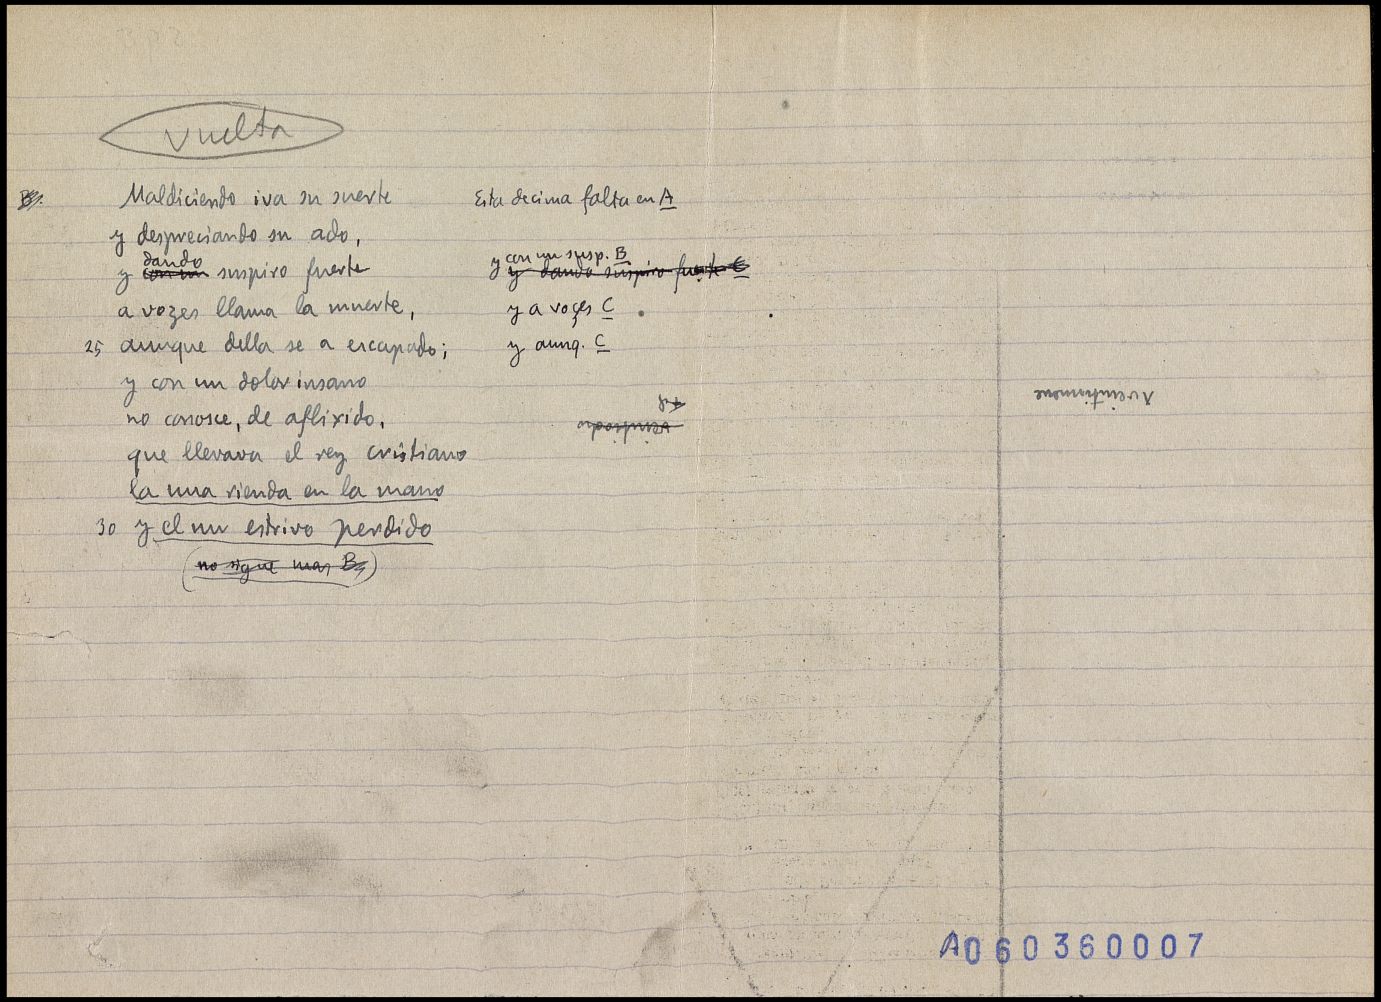 vuelta
Maldiciendo iva su suerte
Esta decima falta en A
y despreciando su ado,
dando
y con un suspiro fuerte
y con un susp. B
y dando suspiro fuerte C
a vozes llama la muerte,
y a voçes C
25 aunque della se a escapado;
y aunq. C
y con un dolor insano
no conosce, de aflixido,
que llevava el rey cristiano
la una rienda en la mano
30 y el un estrivo perdido
(no sigue mas B)
A060360007